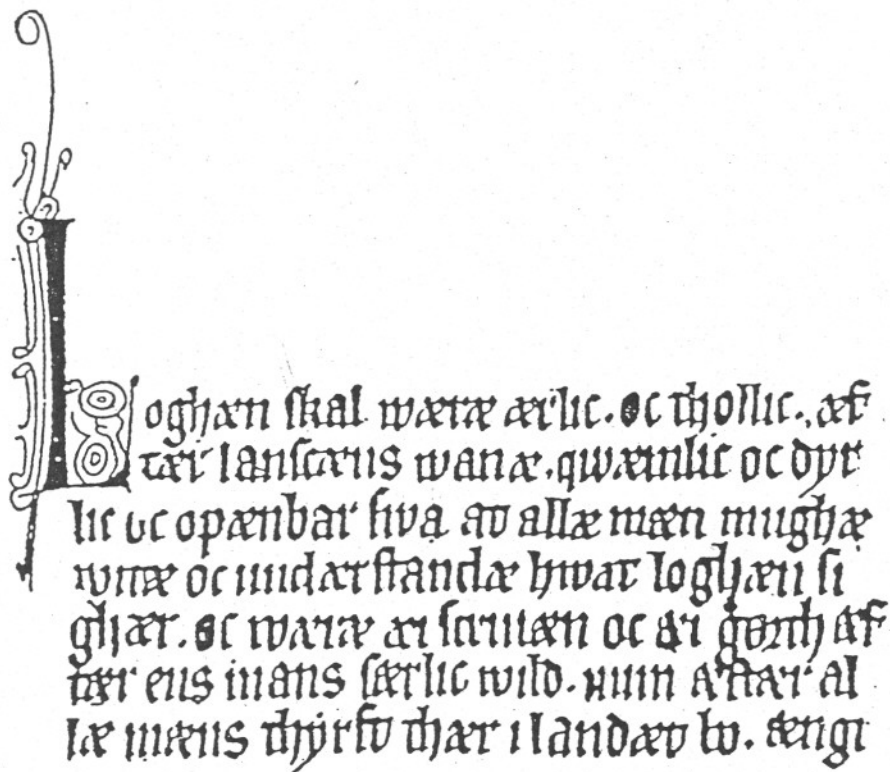 Loghæn skal wæræ ærlic. oc thollic. æf
tær lanscæns wanæ. qwæmlic oc dyr
lic oc opænbar swa at allæ mæn mughæ
witæ oc undærstandæ hwat loghæn si
ghær. oc wæræ æi scriuæn oc æi gørth æf
tær ens mans særlic wild. num æftær al
læ mæns thyrft thær i landæt bo. ængi